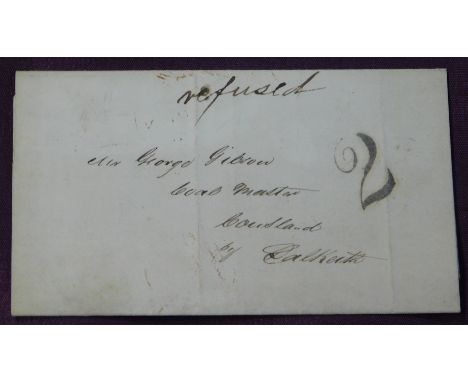 refused
Mr George Gibson
2
Coal Master
Cousland
by Dalkeith